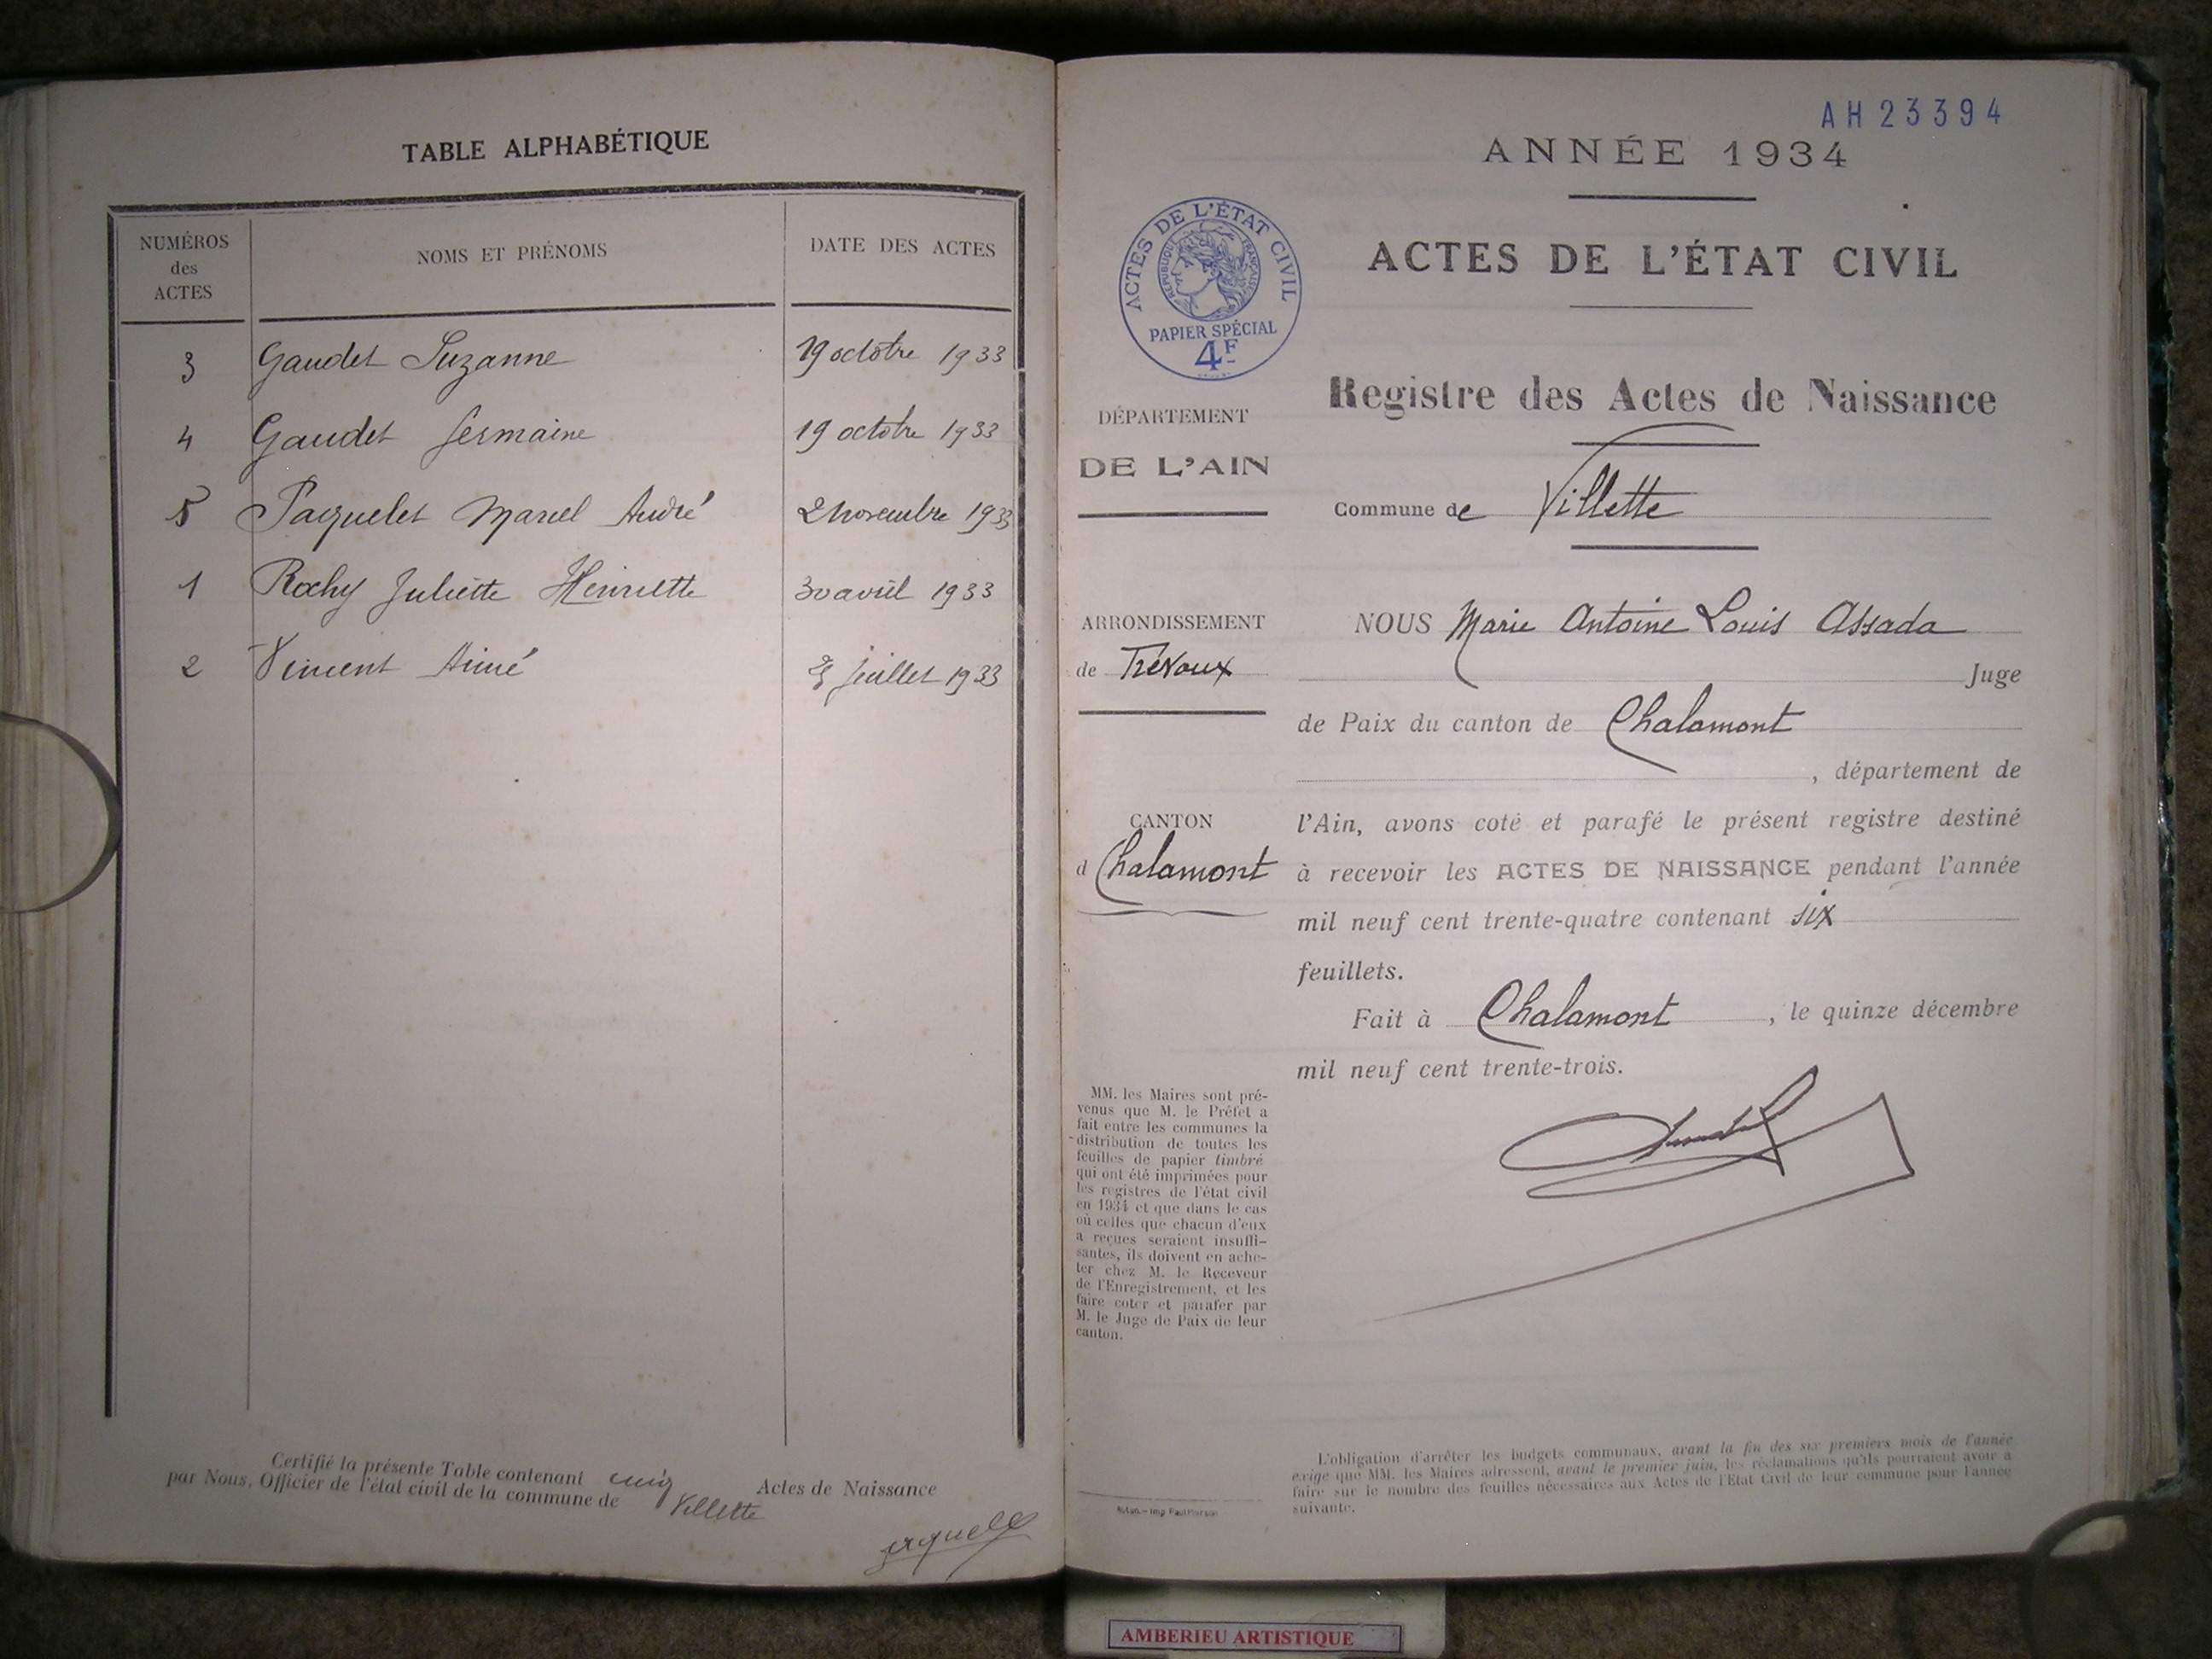 TABLE ALPHABÉTIQUE
NUMÉROS des ACTES NOMS ET PRÉNOMS DATE DES ACTES
3 Gaudet Suzanne 19 octobre 1933
4 Gaudet Germaine 19 octobre 1933
5 Paquelet Marcel André 2 novembre 1933
1 Rochy Juliette Henriette 30 avril 1933
2 Vincent Aimé juillet 1933
Certifié la présente Table contenant cinq Actes de Naissance
par Nous, Officier de l'état civil de la commune de Villette
AH 23394
ANNÉE 1934
ACTES DE L'ÉTAT CIVIL
ACTES DE L'ÉTAT CIVIL
RÉPUBLIQUE FRANÇAISE
PAPIER SPÉCIAL
4F
Registre des Actes de Naissance
Commune de Villette
DÉPARTEMENT
DE L'AIN
ARRONDISSEMENT
de Trévoux
CANTON
d Chalamont
NOUS Marie Antoine Louis Assada
Juge
de Paix du canton de Chalamont
, département de
l'Ain, avons coté et parafé le présent registre destiné
à recevoir les ACTES DE NAISSANCE pendant l'année
mil neuf cent trente-quatre contenant six
feuillets.
Fait à Chalamont, le quinze décembre
mil neuf cent trente-trois.
MM. les Maires sont pré-
venus que M. le Préfet a
fait entre les communes la
distribution de toutes les
feuilles de papier timbré
qui ont été imprimées pour
les registres de l'état civil
en 1934 et que dans le cas
où celles que chacun d'eux
a reçues seraient insuffi-
santes, ils doivent en ache-
ter chez M. le Receveur
de l'Enregistrement, et les
faire coter et parafer par
M. le Juge de Paix de leur
canton.
L'obligation d'arrêter les budgets communaux, avant la fin des six premiers mois de l'année
exige que MM. les Maires adressent, avant le premier juin, les réclamations qu'ils pourraient avoir à
faire sur le nombre des feuilles nécessaires aux Actes de l'Etat Civil de leur commune pour l'année
suivante.
AMBERIEU ARTISTIQUE